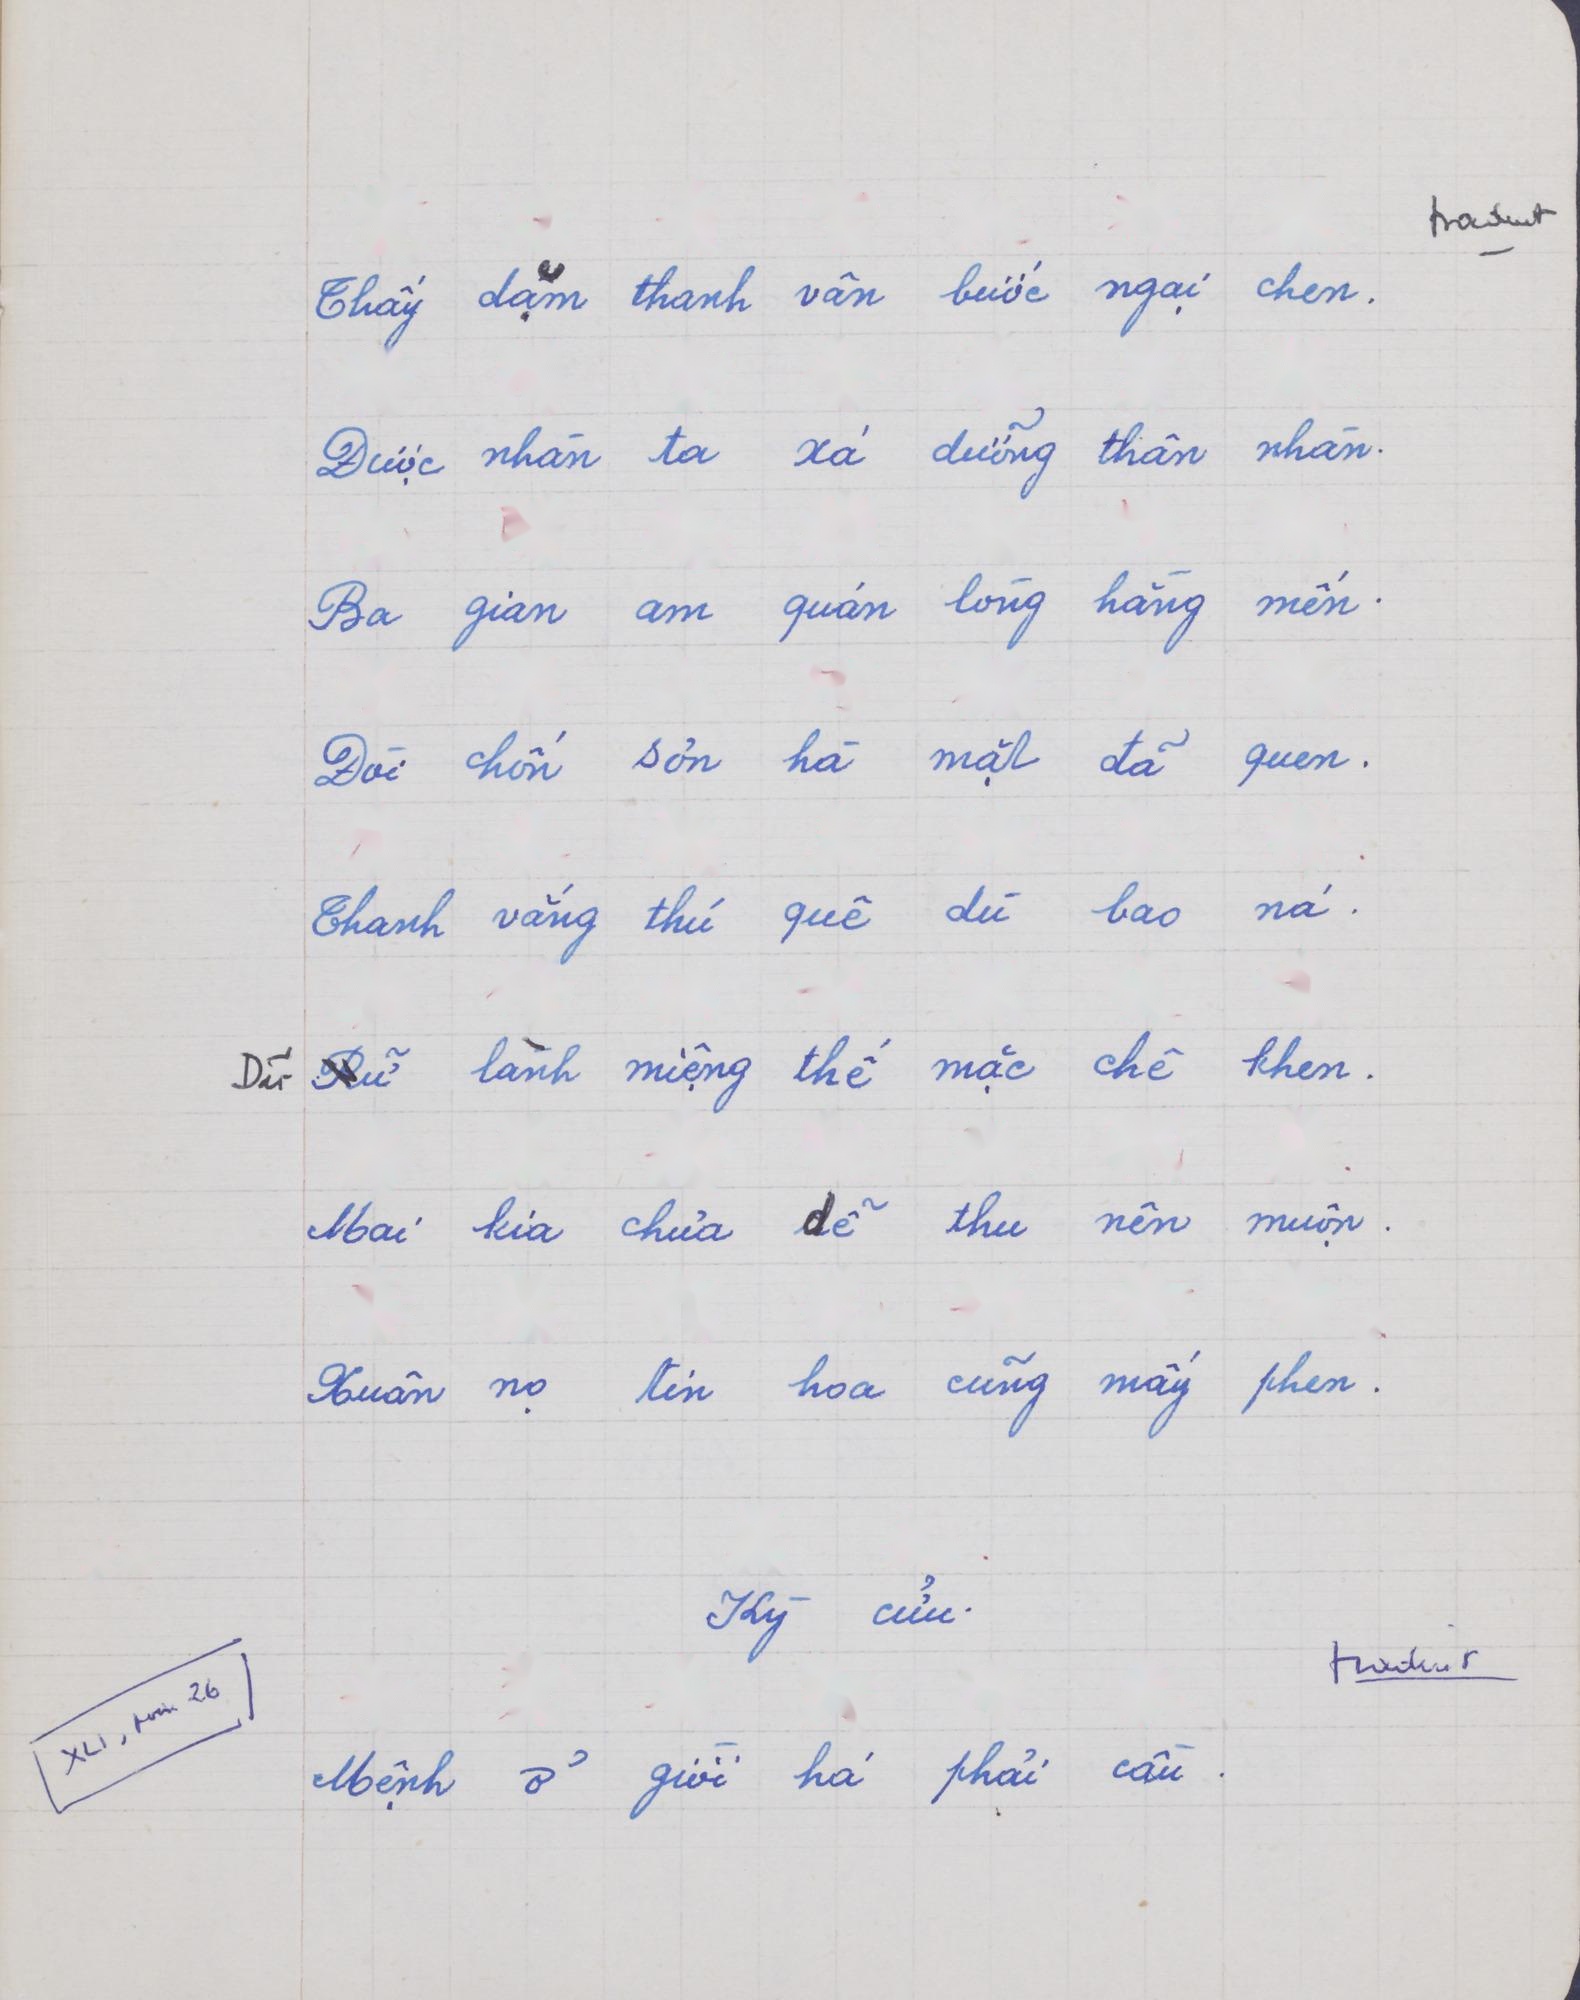 traduit
Thấy dặm thanh vân bước ngại chen.
Được nhàn ta xá dưỡng thân nhàn.
Ba gian am quán lòng hằng mến.
Đòi chốn sơn hà mặt đã quen.
Thanh vắng thú quê dù bao ná.
Dữ Rữ lành miệng thế mặc chê khen.
Mai kia chửa dễ thu nên muộn.
Xuân nọ tin hoa cũng mấy phen.
Kỳ cửu.
traduit
XLI, nom 26
Mệnh ở giời há phải cầu.